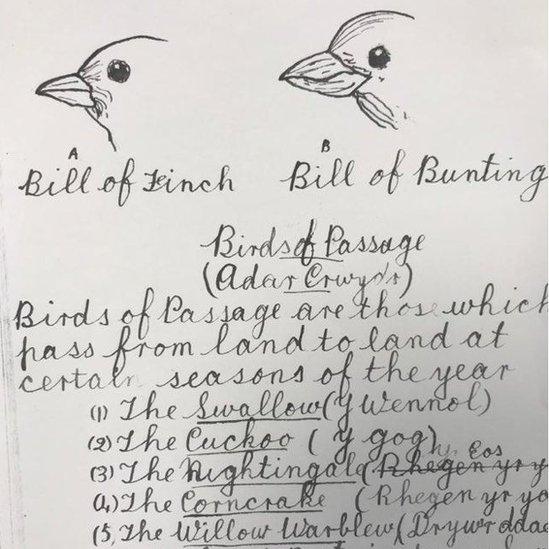 A
B
Bill of Finch
Bill of Bunting
Birds of Passage
(Adar Crwydr)
Birds of Passage are those which
pass from land to land at
certain seasons of the year
(1) The Swallow (Y Wennol)
(2) The Cuckoo ( Y gog)
(3) The Nightingale (Rhegen yr y Yr Eos
(4) The Corncrake (Rhegen yr yd
(5, The Willow Warbler (Dryw'r ddae